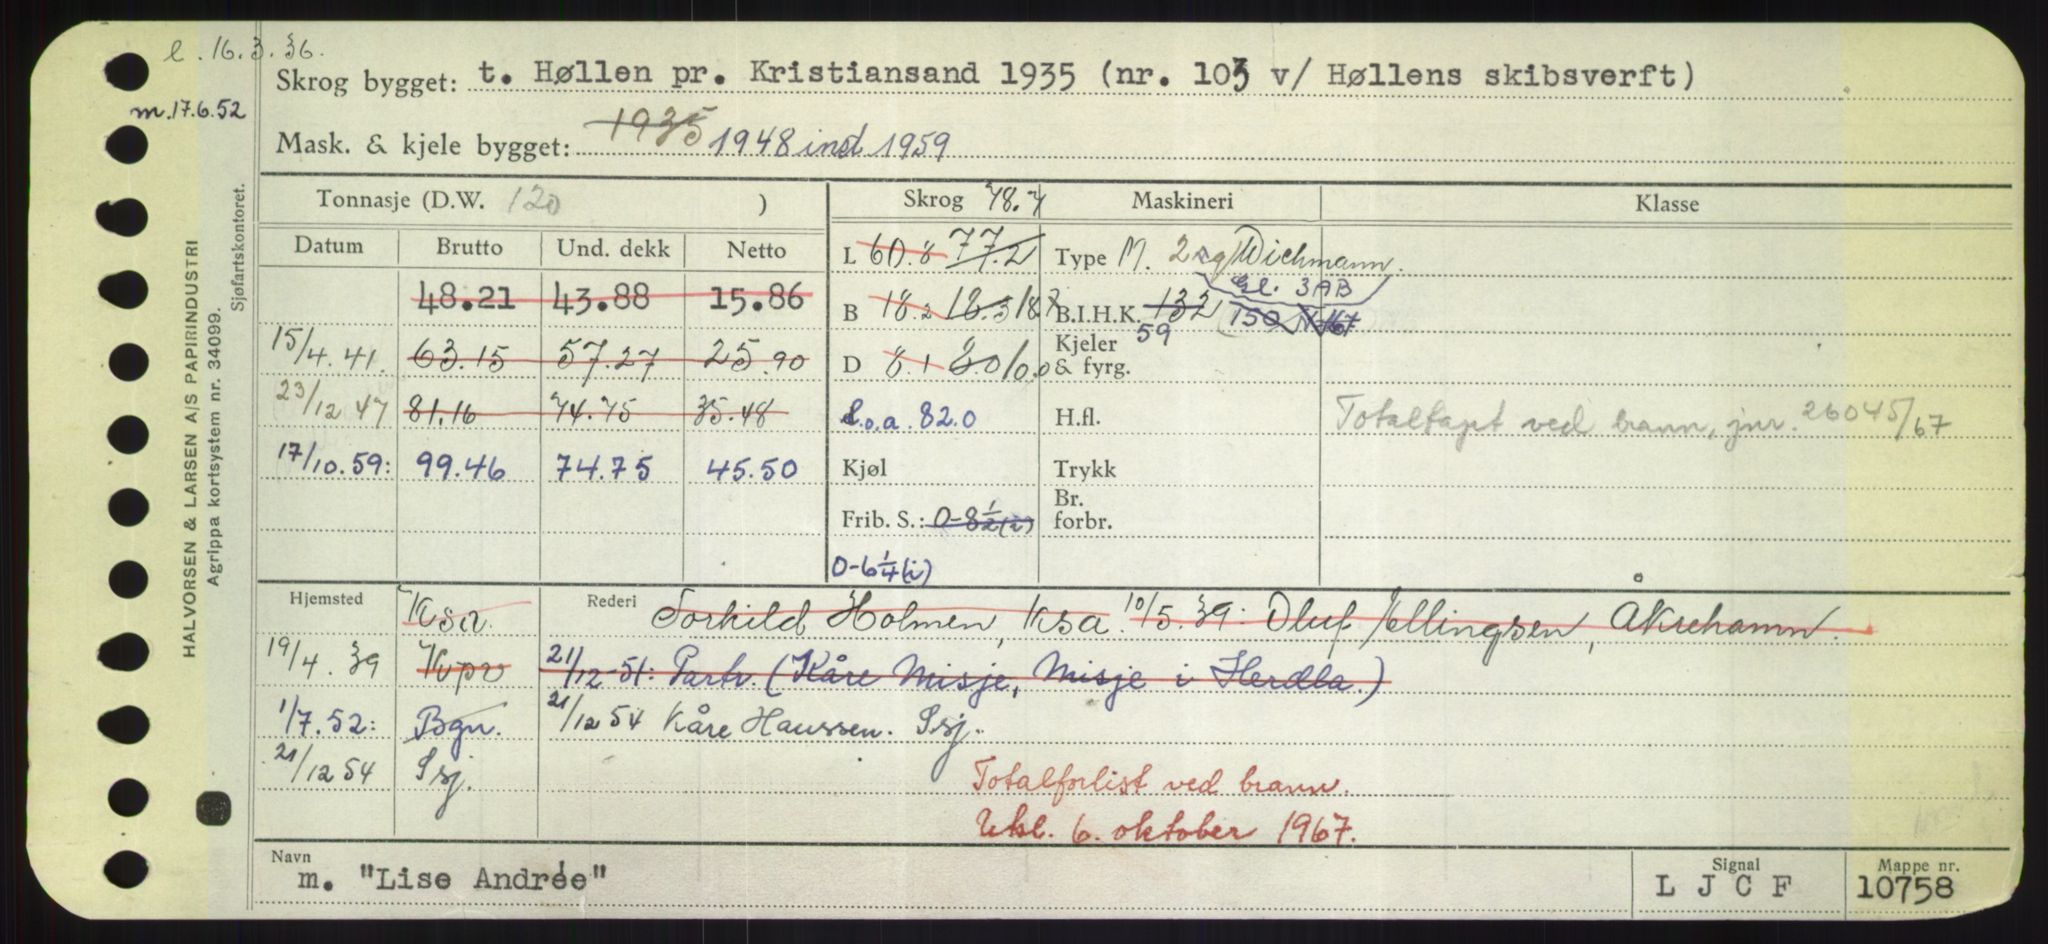 l. 16.3.36.
Skrog bygget: t. Høllen pr. Kristiansand 1935 (nr. 103 v/ Høllens skibsverft)
m. 17.6.52
Mask. & kjele bygget: 1935 1948 ind 1959
Tonnasje (D.W. 120 )
Skrog 78.7
Maskineri
Klasse
Datum Brutto Und. dekk Netto
L 60.8 77.2
Type M. 2 sg Wichmann.
Gl. 3AB
48.21 43.88 15.86
B 18.2 18.3 18.
B.I.H.K. 132 (150 N 167
59
15/4.41. 63.15 57.27 25.90
D 8.1 8.0
Kjeler & fyrg.
23/12 47 81.16 74.75 35.48
L.o.a 82.0
H.fl.
Totaltapt ved brann, jnr. 26045/67
17/10.59: 99.46 74.75 45.50
Kjøl
Trykk
Frib. S.: 0-8½(i)
Br. forbr.
0-6¼(i)
Hjemsted Ksa.
Rederi Torkild Holmen, Ksa. 10/5.39: Oluf Ellingsen, Åkrehamn.
19/4.39 Kopv
21/12-51: Partr. (Kåre Misje, Misje i Herdla.)
1/7.52: Bgn.
21/12 54 Kåre Haussen. Ssj.
21/12 54 Ssj.
Totalforlist ved brann.
Utsl. 6. oktober 1967.
Navn
m. "Lise Andrée"
Signal
L J C F
Mappe nr.
10758
HALVORSEN & LARSEN A/S PAPIRINDUSTRI
Agrippa kortsystem nr. 34099.
Sjøfartskontoret.